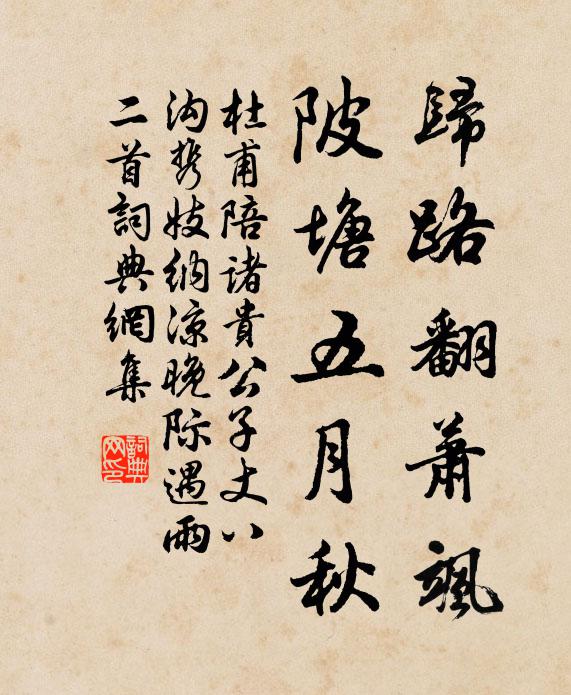 歸路翻蕭颯
陂塘五月秋
杜甫陪諸貴公子丈八
沟携妓纳凉晚际遇雨
二首詞典網集
詞典网印